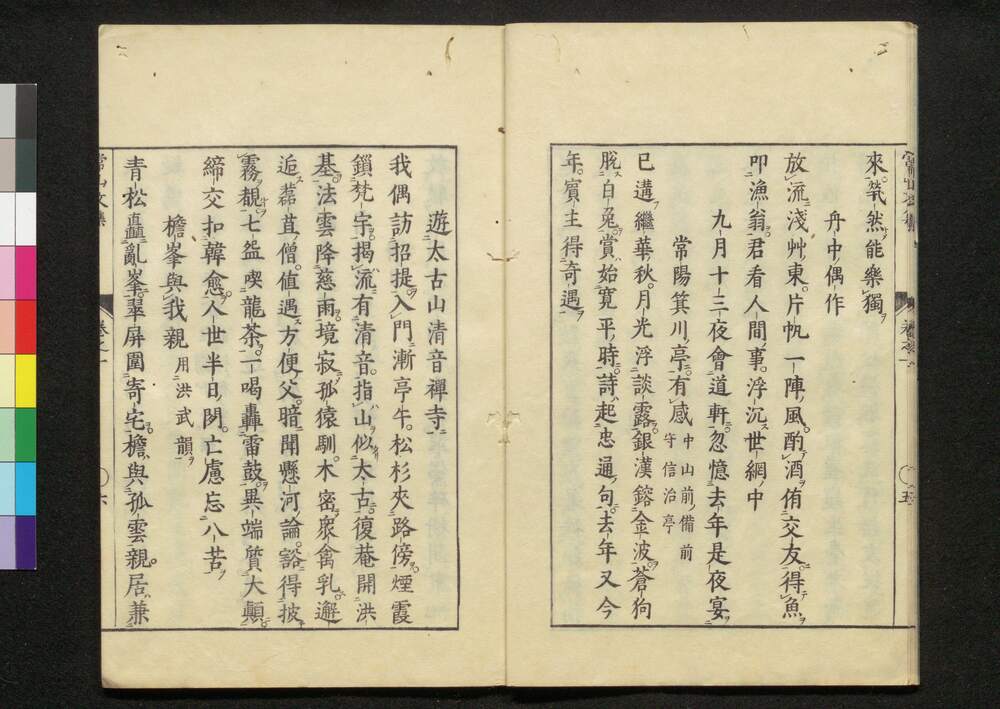 來。煢然能樂獨
舟中偶作
放流淺艸東。片帆一陣風。酌酒侑交友。得魚
叩漁翁。君看人間事。浮沉世網中
九月十三夜會道軒。忽憶去年是夜宴
常陽箕川亭。有感 中山前備前守信治亭
已遘繼華秋。月光浮談露。銀漢鎔金波。蒼狗
脫白兔。賞始寛平時。詩起忠通句。去年又今
年。賓主得奇遇
卷之一
五
遊太古山清音禪寺
我偶訪招提。入門漸亭午。松杉夾路傍。煙霞
鎖梵宇。揭流有清音。指山似太古。復菴開洪
基。法雲降慈雨。境寂孤猿馴。木密衆禽乳。邂
逅萿苴僧。值遇方便父。暗聞懸河論。豁得披
霧覩。七碗喫龍茶。一喝轟雷鼓。異端質大顚。
締交扣韓愈。人世半日閑。亡慮忘八苦
檐峯與我親 用洪武韻
青松矗亂峯。翠屏圍寄宅。檐與孤雲親。居兼
常山文集
卷之一
六